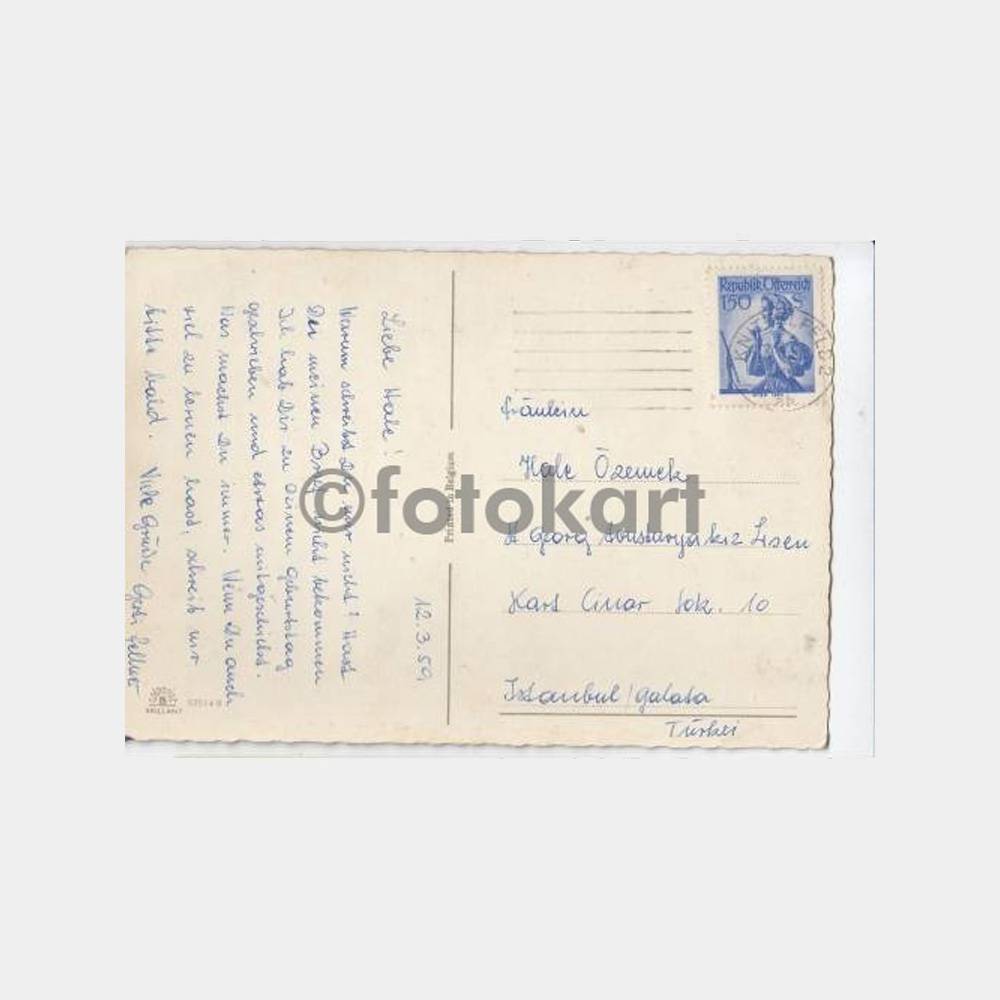 12.3.59
Liebe Hale!
Warum schreibst Du mir nicht? Hast
Du meinen Brief nicht bekommen
Ich hab Dir zu Deinem Geburtstag
geschrieben und etwas mitgeschickt.
Was machst Du immer. Wenn Du auch
viel zu lernen hast, schreib mir
bitte bald. Viele Grüße Gerti
BRILLANT
Printed in Belgium
©fotokart
Republik Österreich
150 S
Fräulein
Hale Özemek
St Georg Avusturya kız Lisesi
Kart Cinar Sok. 10
Istanbul/Galata
Türkei